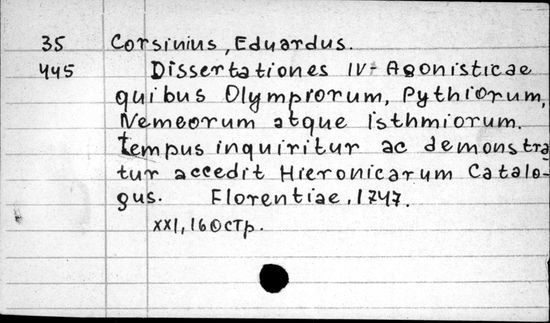 35 Corsinius, Eduardus.
445 Dissertationes IV- Agonisticae
quibus Olympiorum, Pythiorum,
Nemeorum atque Isthmiorum.
tempus inquiritur ac demonstra
tur accedit Hieronicarum Catalo-
gus. Florentiae, 1747.
XXI, 160 стр.